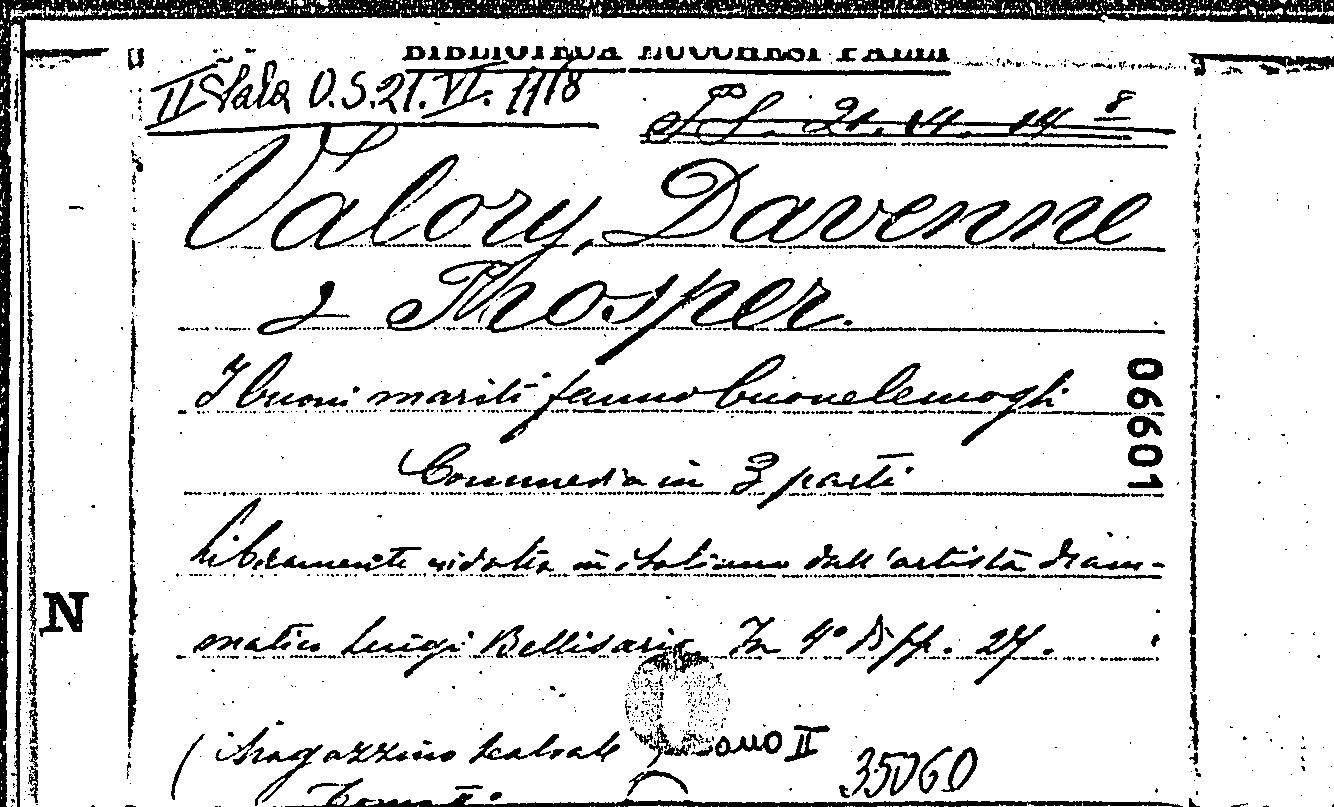 BIBLIOTECA LUCCHESI PALLI
II Sala O.S.21.VI.11/8
21.
Valory, Davenne
& Prosper.
I buoni mariti fanno buone le mogli
Commedia in 3 parti
liberamente ridotta in italiano dall'artista dram-
matico Luigi Bellisario In 4° di pp. 27.
(Magazzino teatrale Anno II
35060
Tomo I°
06601
N